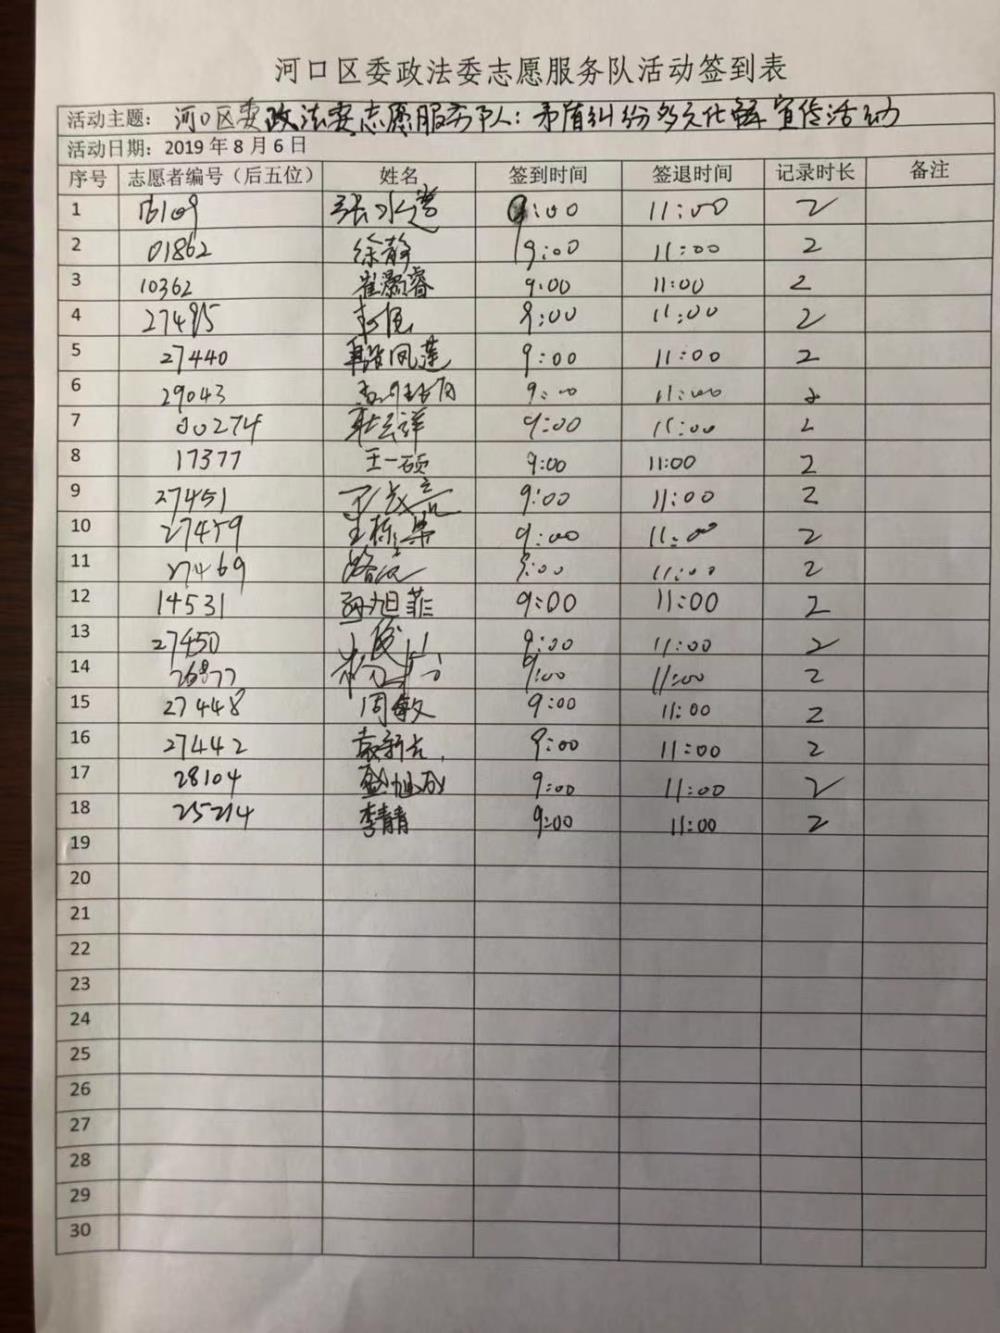 河口区委政法委志愿服务队活动签到表
活动主题： 河口区委政法委志愿服务队：矛盾纠纷多元化解宣传活动
活动日期：2019年8月6日
序号 志愿者编号（后五位） 姓名 签到时间 签退时间 记录时长 备注
1 16109 9:00 11:00 2
2 01862 徐静 9:00 11:00 2
3 10362 崔灏睿 9:00 11:00 2
4 27495 9:00 11:00 2
5 27440 凤莲 9:00 11:00 2
6 29043 9:00 11:00 2
7 00274 9:00 11:00 2
8 17377 王一硕 9:00 11:00 2
9 27451 9:00 11:00 2
10 27459 王栋梁 9:00 11:00 2
11 27469 9:00 11:00 2
12 14531 孙旭菲 9:00 11:00 2
13 27450 9:00 11:00 2
14 26877 9:00 11:00 2
15 27448 周敏 9:00 11:00 2
16 27442 9:00 11:00 2
17 28104 盛旭成 9:00 11:00 2
18 25214 李青青 9:00 11:00 2
19
20
21
22
23
24
25
26
27
28
29
30